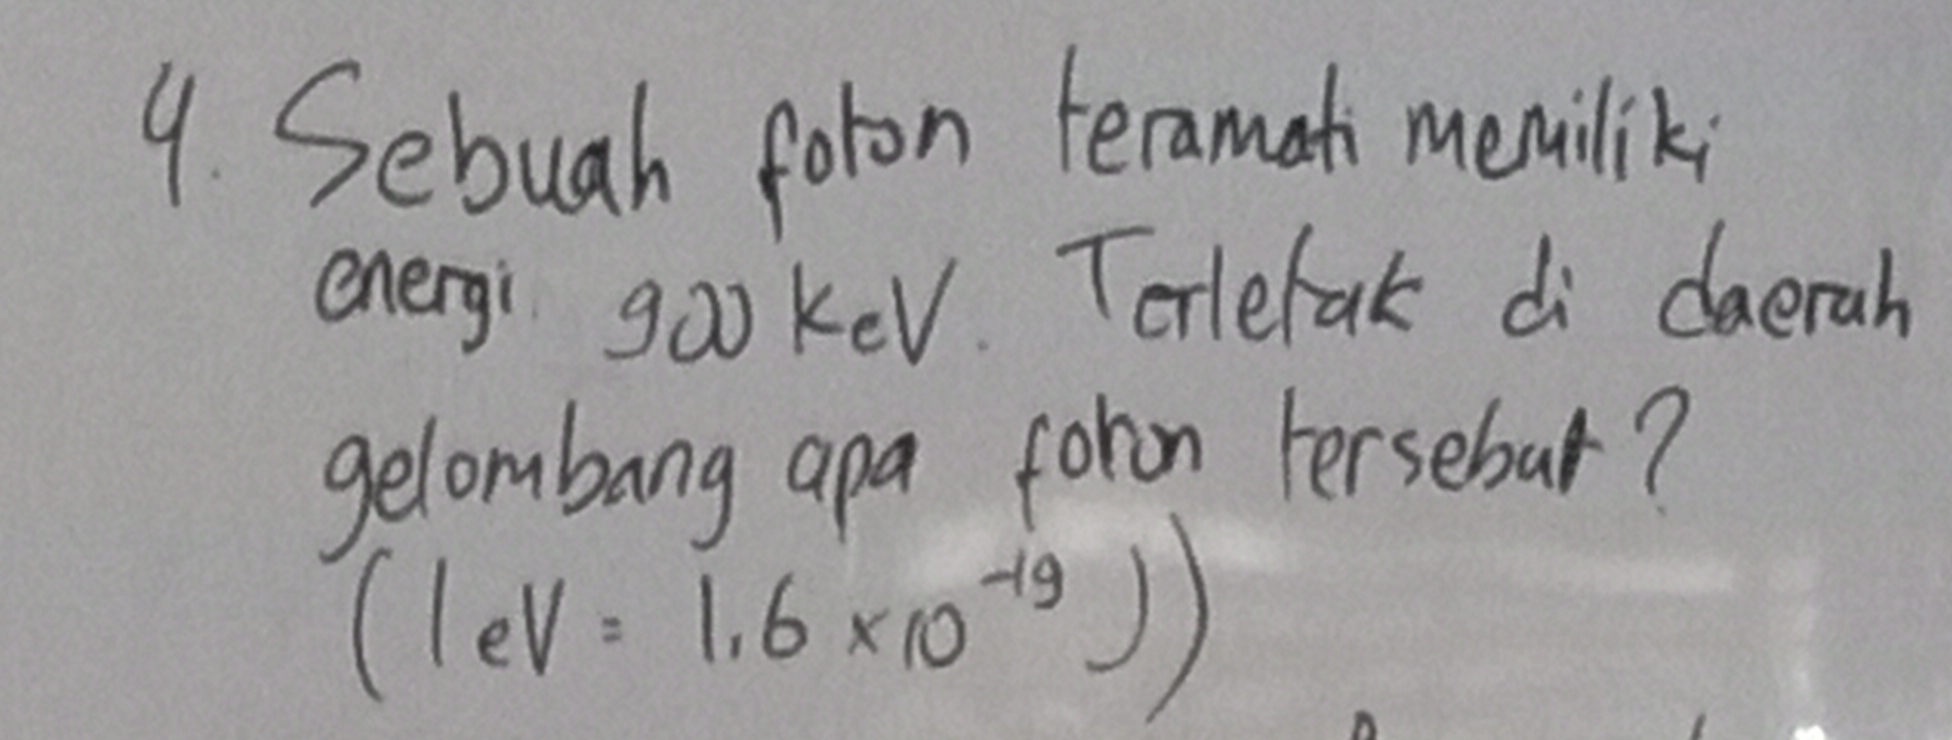 4. Sebuah foton teramati memiliki
energi 900 keV. Terletak di daerah
gelombang apa foton tersebut?
(1 eV = 1.6 × 10⁻¹⁹ J)